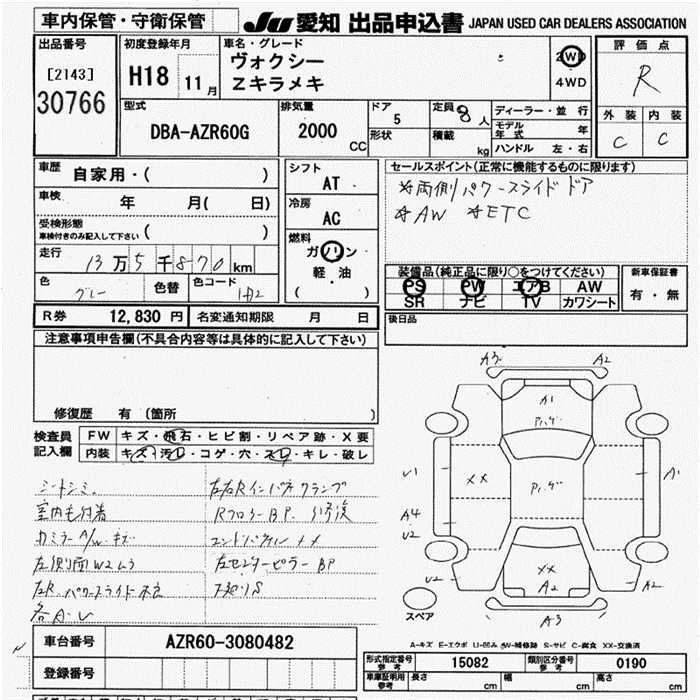 車内保管・守衛保管
JU 愛知 出品申込書 JAPAN USED CAR DEALERS ASSOCIATION
出品番号
[2143]
30766
初度登録年月
H18 11月
車名・グレード
ヴォクシー
Zキラメキ
2WD
4WD
評価点
R
外装 内装
C C
型式
DBA-AZR60G
排気量
2000
CC
ドア
5
形状
定員 8人
積載 kg
ディーラー・並行
モデル年式 年
ハンドル 左・右
車歴
自家用・( )
車検
年 月( 日)
受検形態
車検付きのみ記入して下さい ( )
走行
13万5千870km
色
グレー
色替
色コード
1H2
シフト
AT
冷房
AC
燃料
ガソリン
軽・油
( )
セールスポイント(正常に機能するものに限ります)
*両側パワースライドドア
*AW *ETC
装備品(純正品に限り○をつけてください)
PS PW エアB AW
SR ナビ TV カワシート
新車保証書
有・無
後日品
R券 12,830円 名変通知期限 月 日
注意事項申告欄(不具合内容等は具体的に記入して下さい)
修復歴 有(箇所 )
検査員記入欄
FW キズ・飛石・ヒビ割・リペア跡・X要
内装 キズ・汚レ・コゲ・穴・スレ・キレ・破レ
シートシミ
室内モケ付着
カミラーA/W キズ
左側面W2ムラ
左R パワースライド不良
各A・U
左右Rインパネクランプ
RフロアーBP
エンドパネル XX
左センターピラーBP
下廻りS
A3 A2
A1
アハゲ
U1 XX アハゲ A1
A4
U2
U2 XX A2 A2
A3
スペア
A-キズ E-エクボ U-凹み W-補修跡 S-サビ C-腐食 XX-交換済
車台番号 AZR60-3080482
登録番号
形式指定番号 参考 15082 類別区分番号 参考 0190
車庫証明用 参考 長さ cm 幅 cm 高さ cm